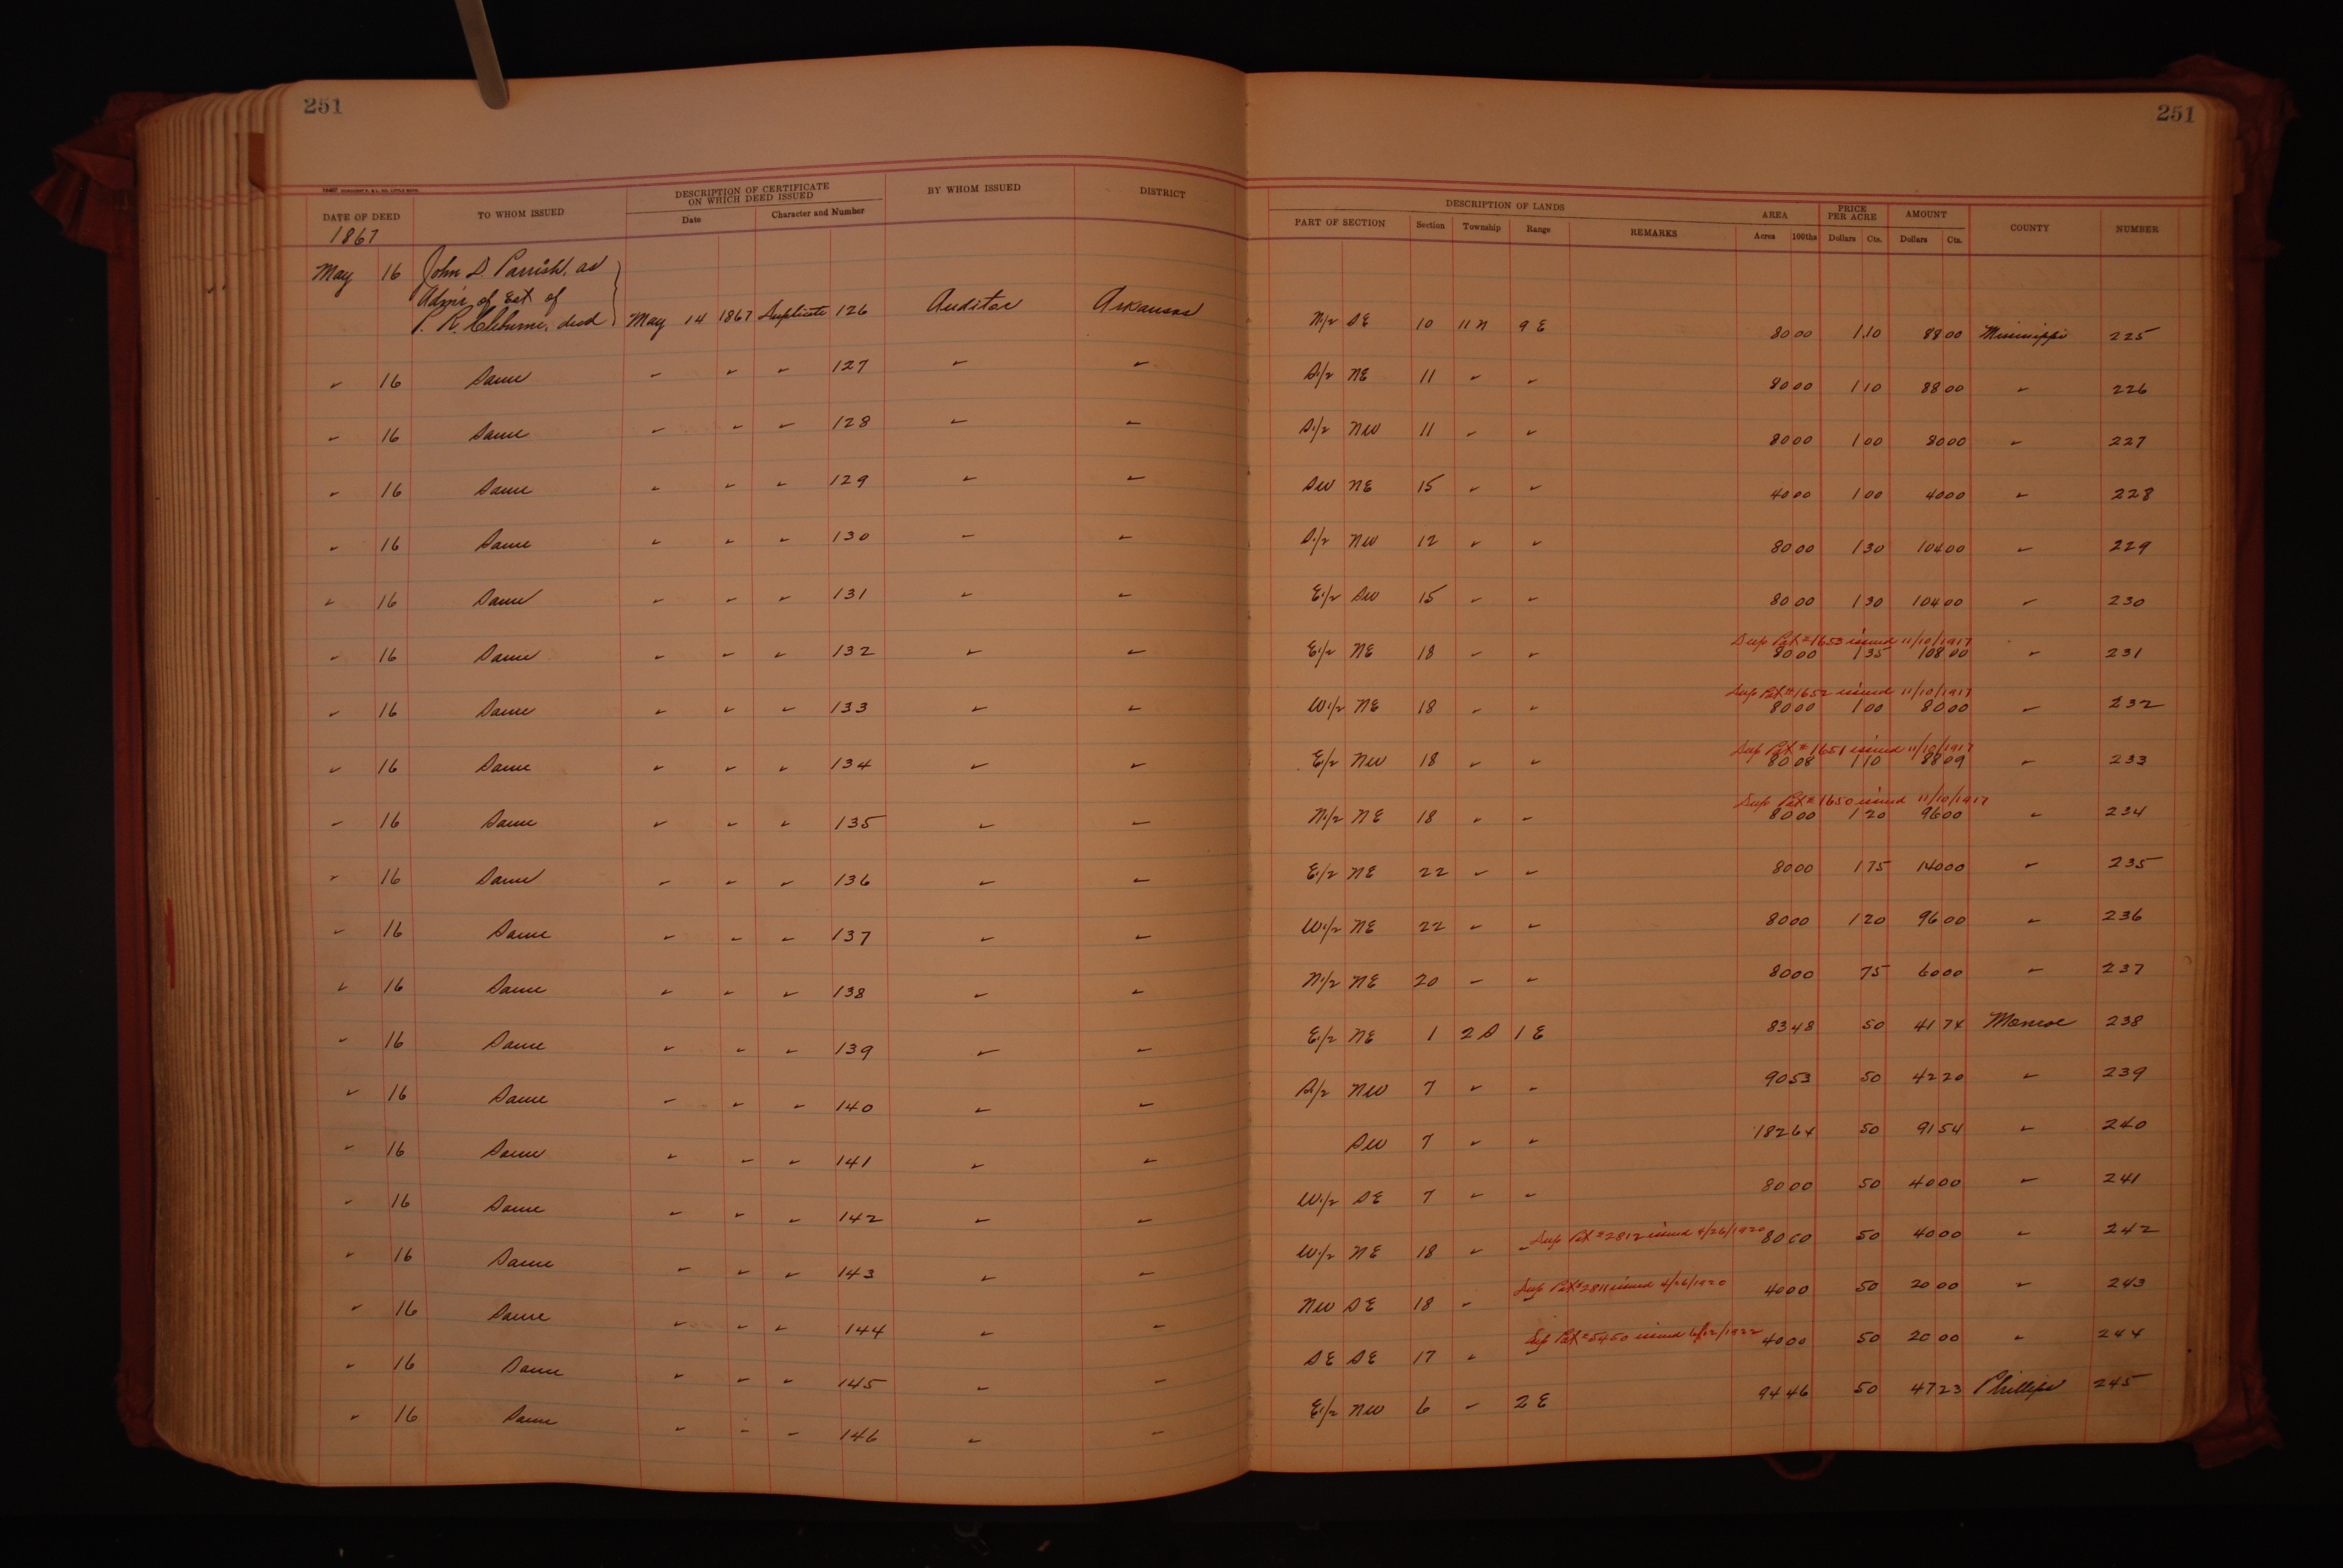 251
251
DATE OF DEED TO WHOM ISSUED DESCRIPTION OF CERTIFICATE ON WHICH DEED ISSUED BY WHOM ISSUED DISTRICT DESCRIPTION OF LANDS AREA PRICE PER ACRE AMOUNT COUNTY NUMBER
Date Character and Number PART OF SECTION Section Township Range REMARKS Acres 100ths Dollars Cts. Dollars Cts.
1867
May 16 John D. Parrish, as
Adm'r of Est of
P. R. Cleburne, decd May 14 1867 Duplicate 126 Auditor Arkansas N1/2 SE 10 11 N 9 E 80 00 1 10 88 00 Mississippi 225
" 16 Same " " " 127 " " S1/2 NE 11 " " 80 00 1 10 88 00 " 226
" 16 Same " " " 128 " " S1/2 NW 11 " " 80 00 1 00 80 00 " 227
" 16 Same " " " 129 " " SW NE 15 " " 40 00 1 00 40 00 " 228
" 16 Same " " " 130 " " S1/2 NW 12 " " 80 00 1 30 104 00 " 229
" 16 Same " " " 131 " " E1/2 SW 15 " " 80 00 1 30 104 00 " 230
Dup Pat #1653 issued 11/10/1917
" 16 Same " " " 132 " " E1/2 NE 18 " " 80 00 1 35 108 00 " 231
Dup Pat #1652 issued 11/10/1917
" 16 Same " " " 133 " " W1/2 NE 18 " " 80 00 1 00 80 00 " 232
Dup Pat #1651 issued 11/10/1917
" 16 Same " " " 134 " " E1/2 NW 18 " " 80 08 1 10 88 09 " 233
Dup Pat #1650 issued 11/10/1917
" 16 Same " " " 135 " " N1/2 NE 18 " " 80 00 1 20 96 00 " 234
" 16 Same " " " 136 " " E1/2 NE 22 " " 80 00 1 75 140 00 " 235
" 16 Same " " " 137 " " W1/2 NE 22 " " 80 00 1 20 96 00 " 236
" 16 Same " " " 138 " " N1/2 NE 20 " " 80 00 75 60 00 " 237
" 16 Same " " " 139 " " E1/2 NE 1 2 S 1 E 83 48 50 41 74 Monroe 238
" 16 Same " " " 140 " " S1/2 NW 7 " " 90 53 50 42 20 " 239
" 16 Same " " " 141 " " SW 7 " " 182 64 50 91 54 " 240
" 16 Same " " " 142 " " W1/2 SE 7 " " 80 00 50 40 00 " 241
" 16 Same " " " 143 " " W1/2 NE 18 " " Dup Pat #2812 issued 4/26/1920 80 00 50 40 00 " 242
" 16 Same " " " 144 " " NW SE 18 " " Dup Pat #2811 issued 4/26/1920 40 00 50 20 00 " 243
" 16 Same " " " 145 " " SE SE 17 " " Dup Pat #5450 issued 6/12/1922 40 00 50 20 00 " 244
" 16 Same " " " 146 " " E1/2 NW 6 " 2 E 94 46 50 47 23 Phillips 245